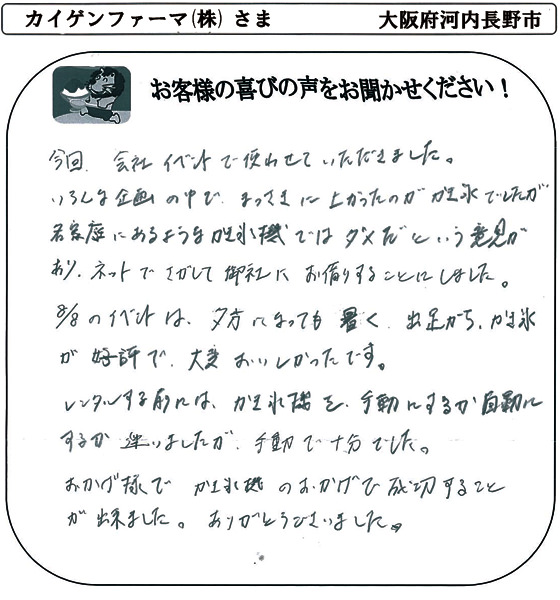 カイゲンファーマ(株)さま 大阪府河内長野市
お客様の喜びの声をお聞かせください！
今回、会社イベントで使わせていただきました。
いろんな企画の中で、まっさきに上がったのがかき氷でしたが
各家庭にあるようなかき氷機ではダメだという意見が
あり、ネットでさがして御社にお借りすることにしました。
8/8のイベントは、夕方になっても暑く、出足から、かき氷
が好評で、大変おいしかったです。
レンタルする前には、かき氷機を、手動にするか自動に
するか迷いましたが、手動で十分でした。
おかげ様でかき氷機のおかげで成功すること
が出来ました。ありがとうございました。